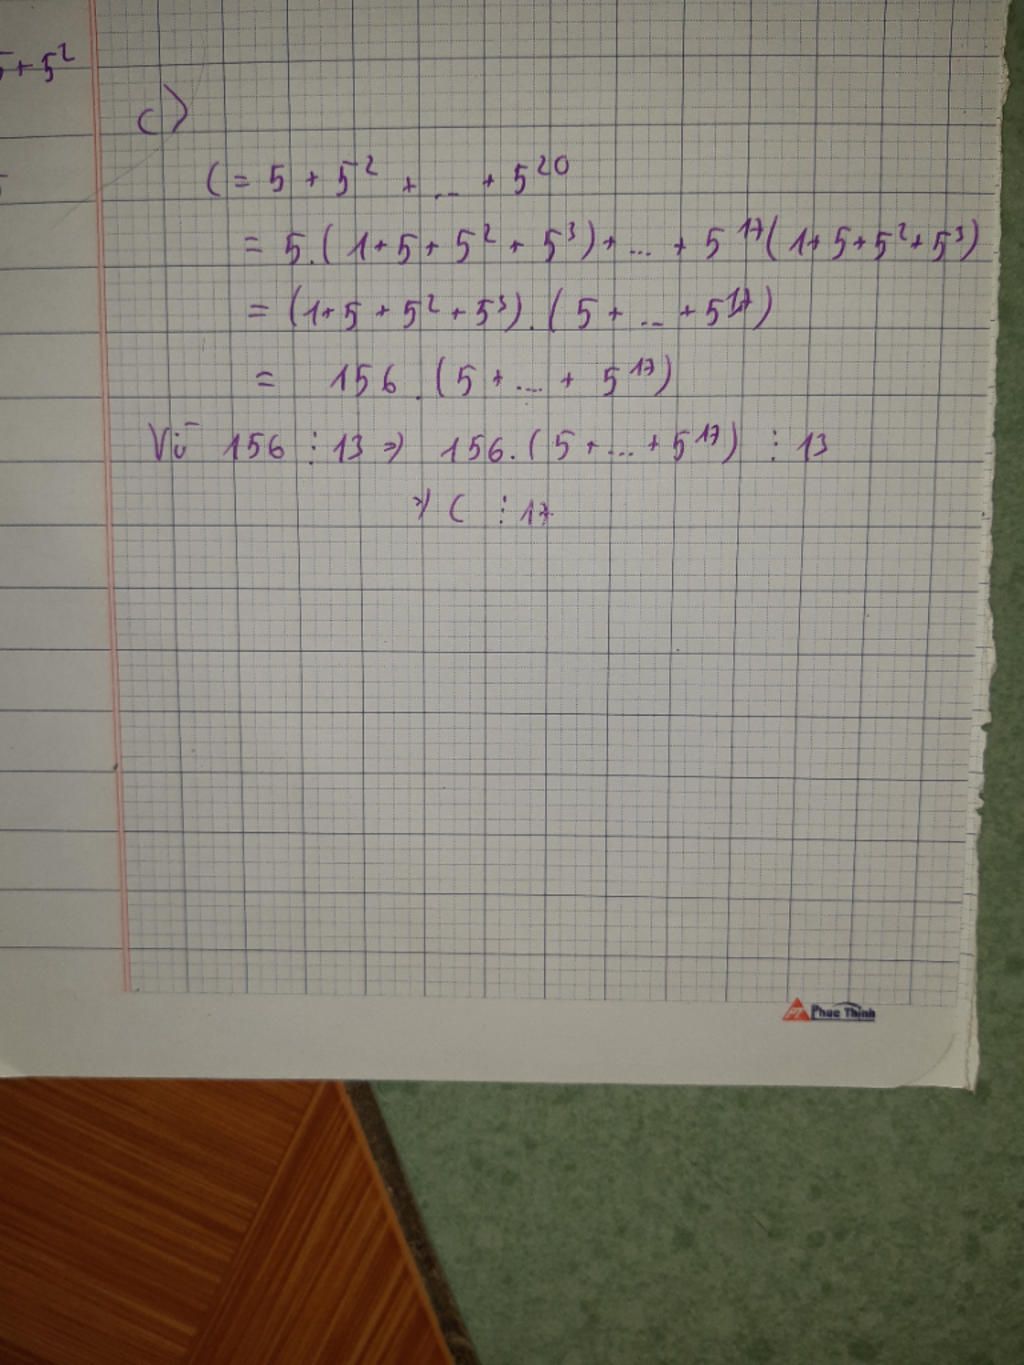 5+5²
c)
C = 5 + 5² + ... + 5²⁰
= 5.(1+5+5²+5³)+...+5¹⁷(1+5+5²+5³)
= (1+5+5²+5³).(5+...+5¹⁷)
= 156.(5+...+5¹⁷)
Vì 156 ⋮ 13 => 156.(5+...+5¹⁷) ⋮ 13
=> C ⋮ 17
PT Phuc Thinh